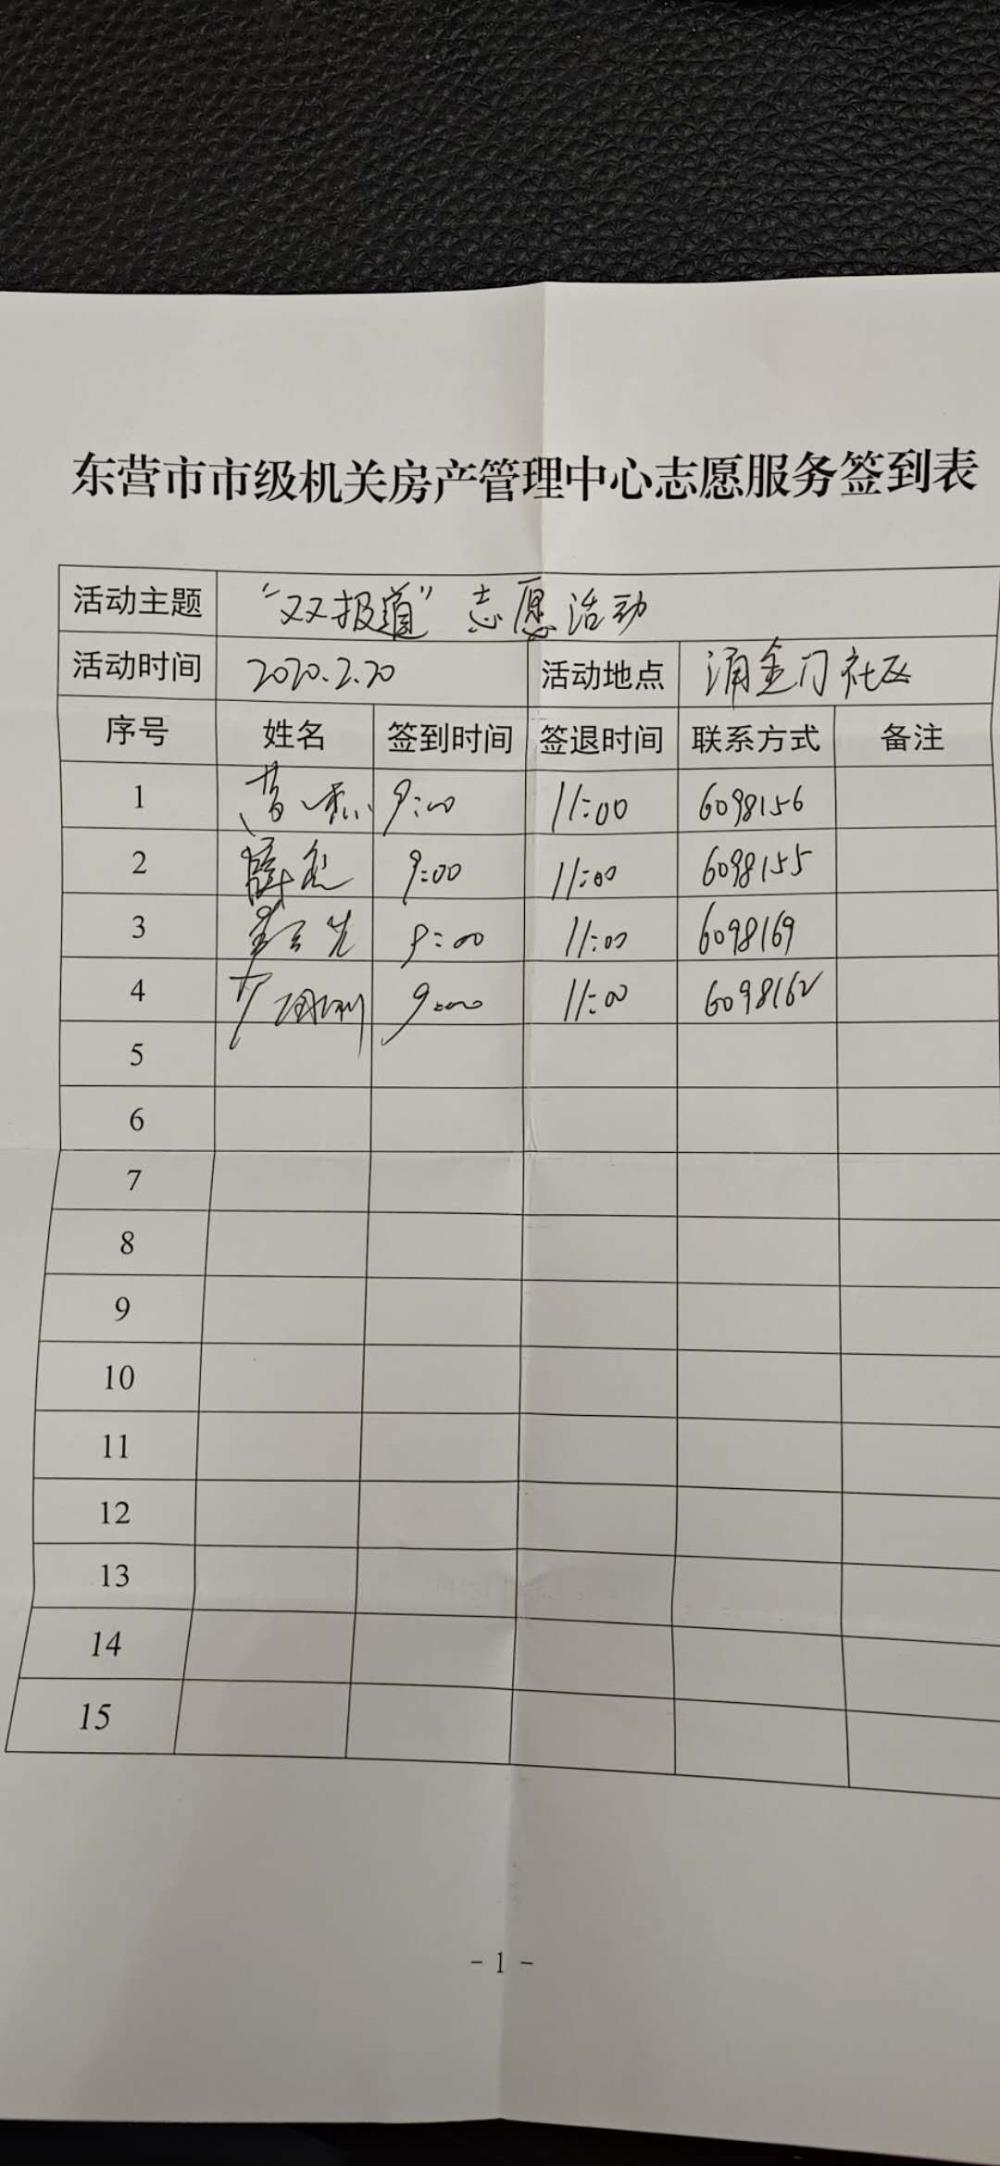 东营市市级机关房产管理中心志愿服务签到表
活动主题 “双报道”志愿活动
活动时间 2020.2.20 活动地点 涌金门社区
序号 姓名 签到时间 签退时间 联系方式 备注
1 9:00 11:00 6098156
2 9:00 11:00 6098155
3 9:00 11:00 6098169
4 9:00 11:00 6098162
5
6
7
8
9
10
11
12
13
14
15
- 1 -